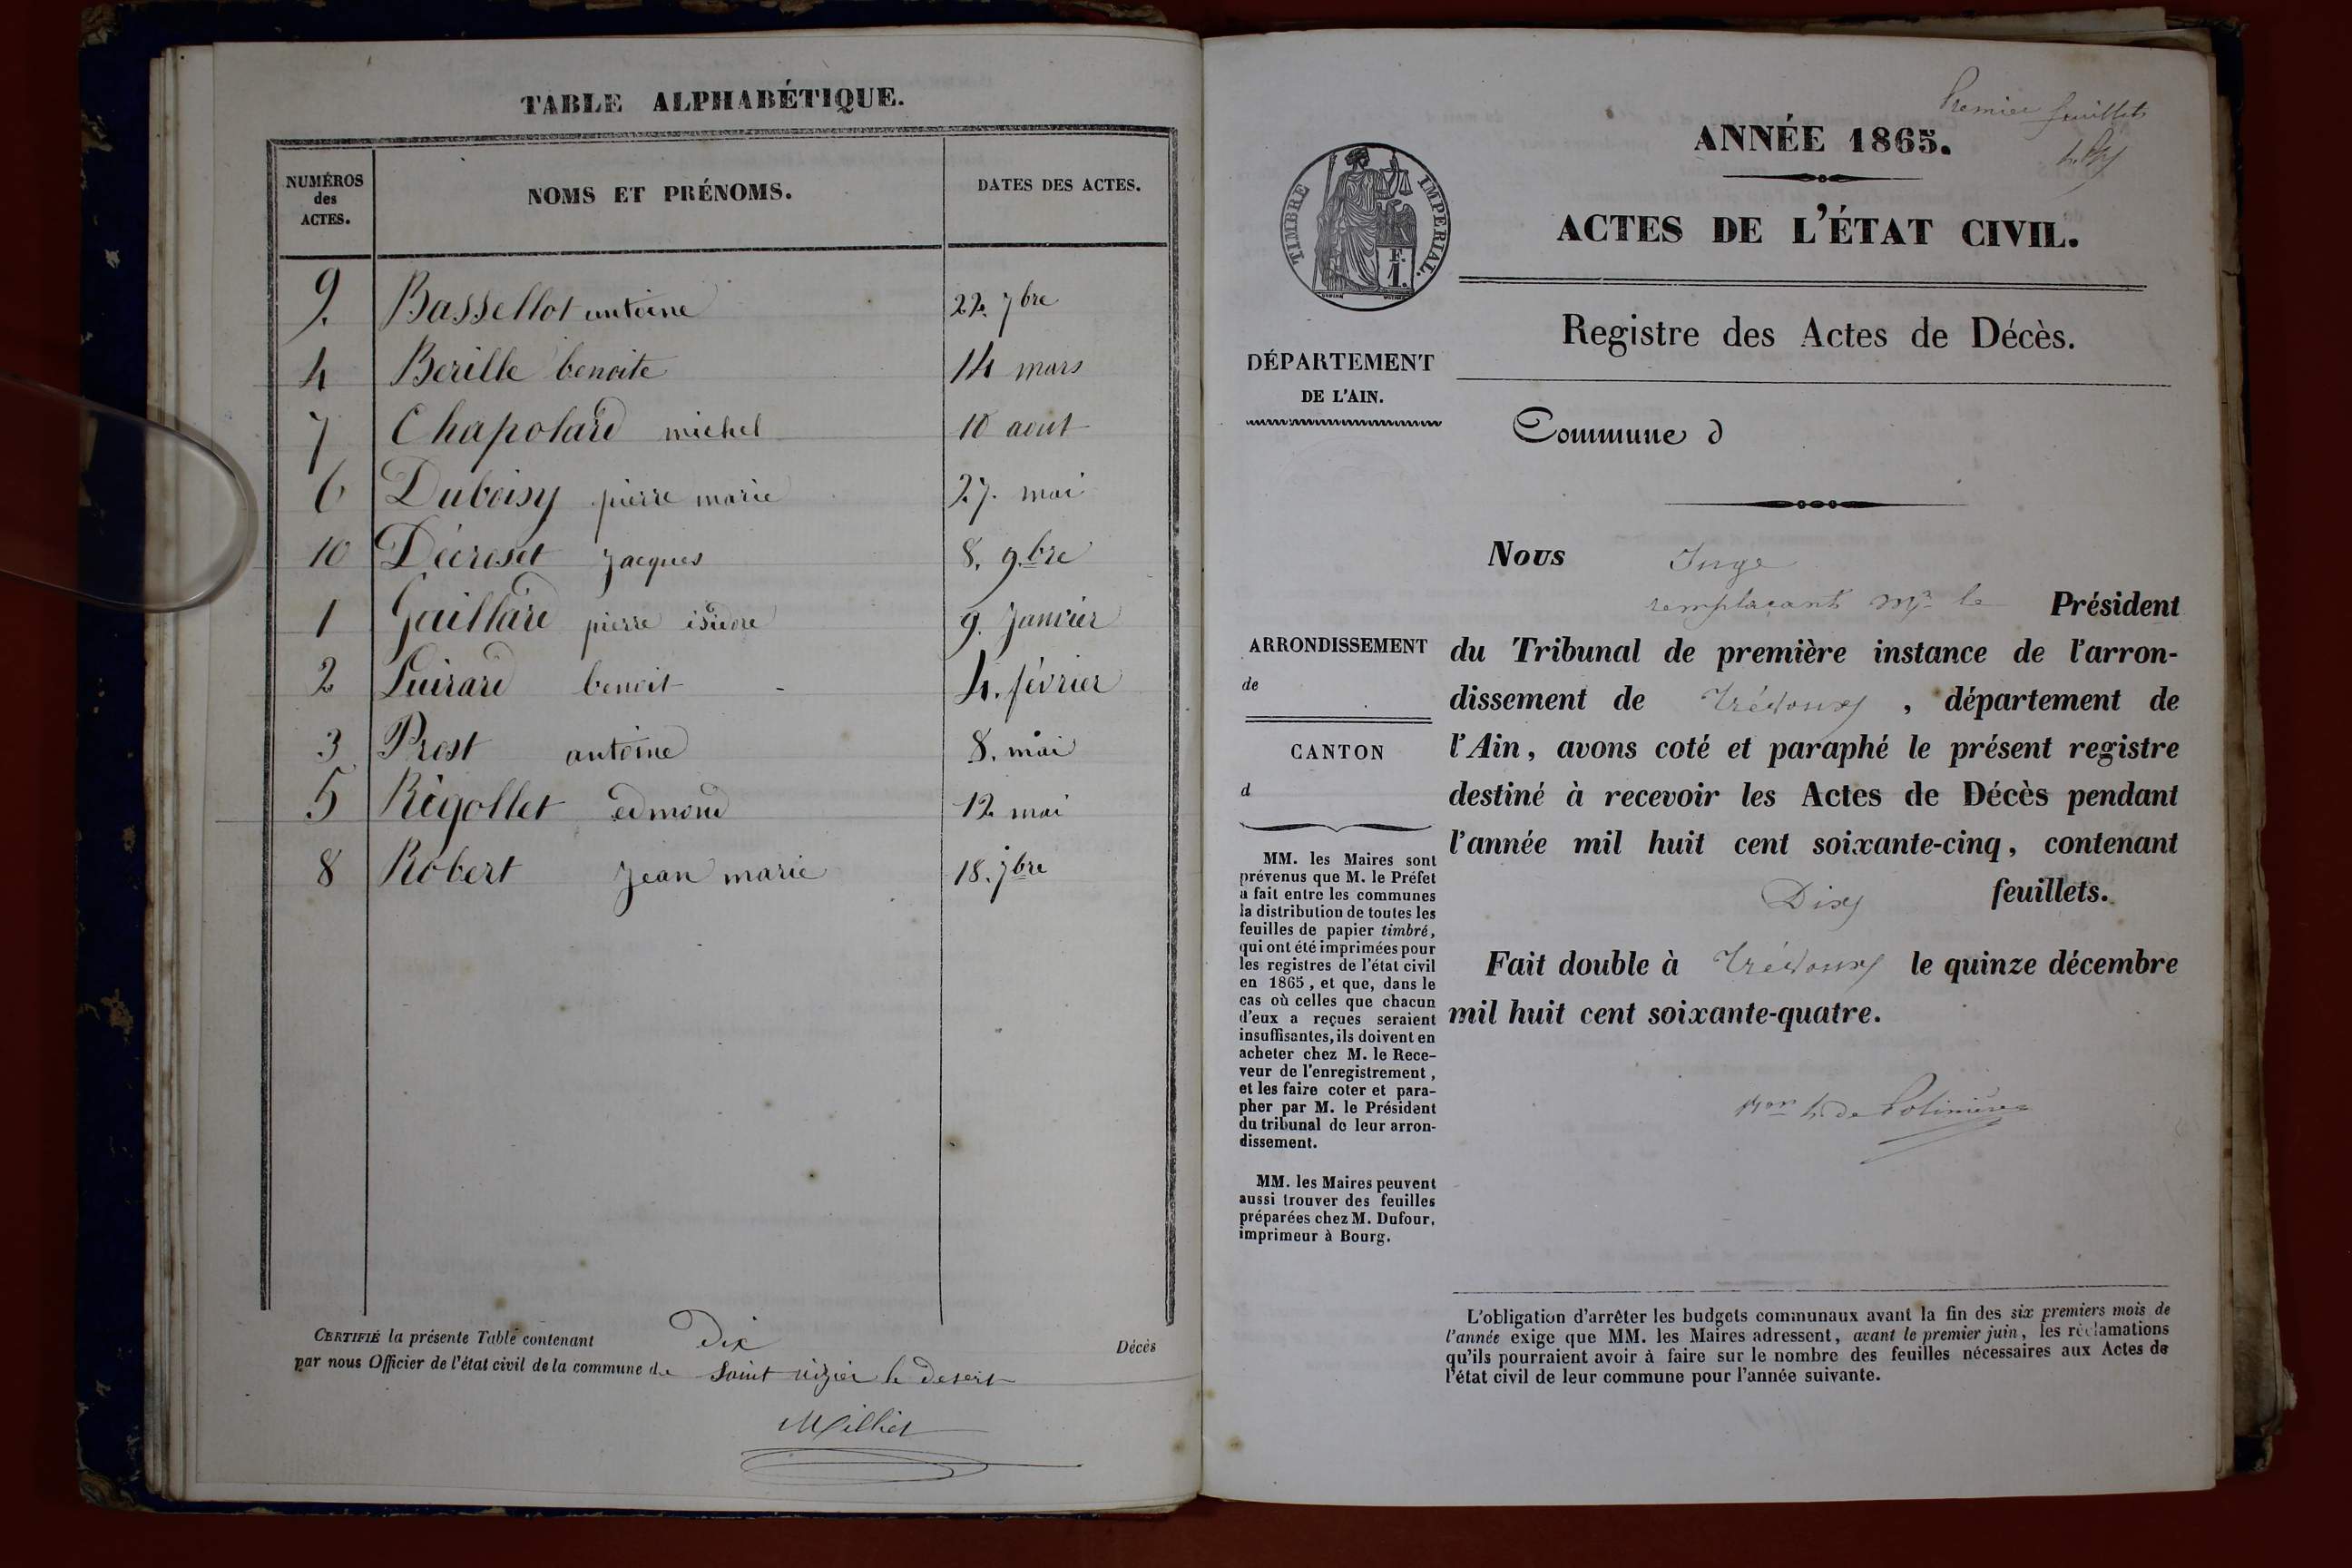 TABLE ALPHABÉTIQUE.
NUMÉROS des ACTES. NOMS ET PRÉNOMS. DATES DES ACTES.
9. Bassellot antoine 22. 7bre
4 Berille benoite 14 mars
7 Chapolard michel 10 aout
6 Duboisy pierre marie 27. mai
10 Décroset Jacques 8. 9.bre
1 Gaillard pierre isidore 9. Janvier
2 Guirard benoit 4. février
3 Prost antoine 8. mai
5 Rigollet edmond 12 mai
8 Robert Jean marie 18. 7bre
CERTIFIÉ la présente Table contenant Dix Décès
par nous Officier de l'état civil de la commune de Saint nizier le desert
Milliet
Premier feuillet
ANNÉE 1865.
ACTES DE L'ÉTAT CIVIL.
TIMBRE IMPERIAL.
F.
1.
Registre des Actes de Décès.
DÉPARTEMENT
DE L'AIN.
Commune d
ARRONDISSEMENT
de
CANTON
d
MM. les Maires sont
prévenus que M. le Préfet
a fait entre les communes
la distribution de toutes les
feuilles de papier timbré,
qui ont été imprimées pour
les registres de l'état civil
en 1865, et que, dans le
cas où celles que chacun
d'eux a reçues seraient
insuffisantes, ils doivent en
acheter chez M. le Rece-
veur de l'enregistrement,
et les faire coter et para-
pher par M. le Président
du tribunal de leur arron-
dissement.
MM. les Maires peuvent
aussi trouver des feuilles
préparées chez M. Dufour,
imprimeur à Bourg.
Nous Juge
remplaçant Mr le Président
du Tribunal de première instance de l'arron-
dissement de Trévoux, département de
l'Ain, avons coté et paraphé le présent registre
destiné à recevoir les Actes de Décès pendant
l'année mil huit cent soixante-cinq, contenant
Dix feuillets.
Fait double à Trévoux le quinze décembre
mil huit cent soixante-quatre.
Bon h. de Polinière
L'obligation d'arrêter les budgets communaux avant la fin des six premiers mois de
l'année exige que MM. les Maires adressent, avant le premier juin, les réclamations
qu'ils pourraient avoir à faire sur le nombre des feuilles nécessaires aux Actes de
l'état civil de leur commune pour l'année suivante.